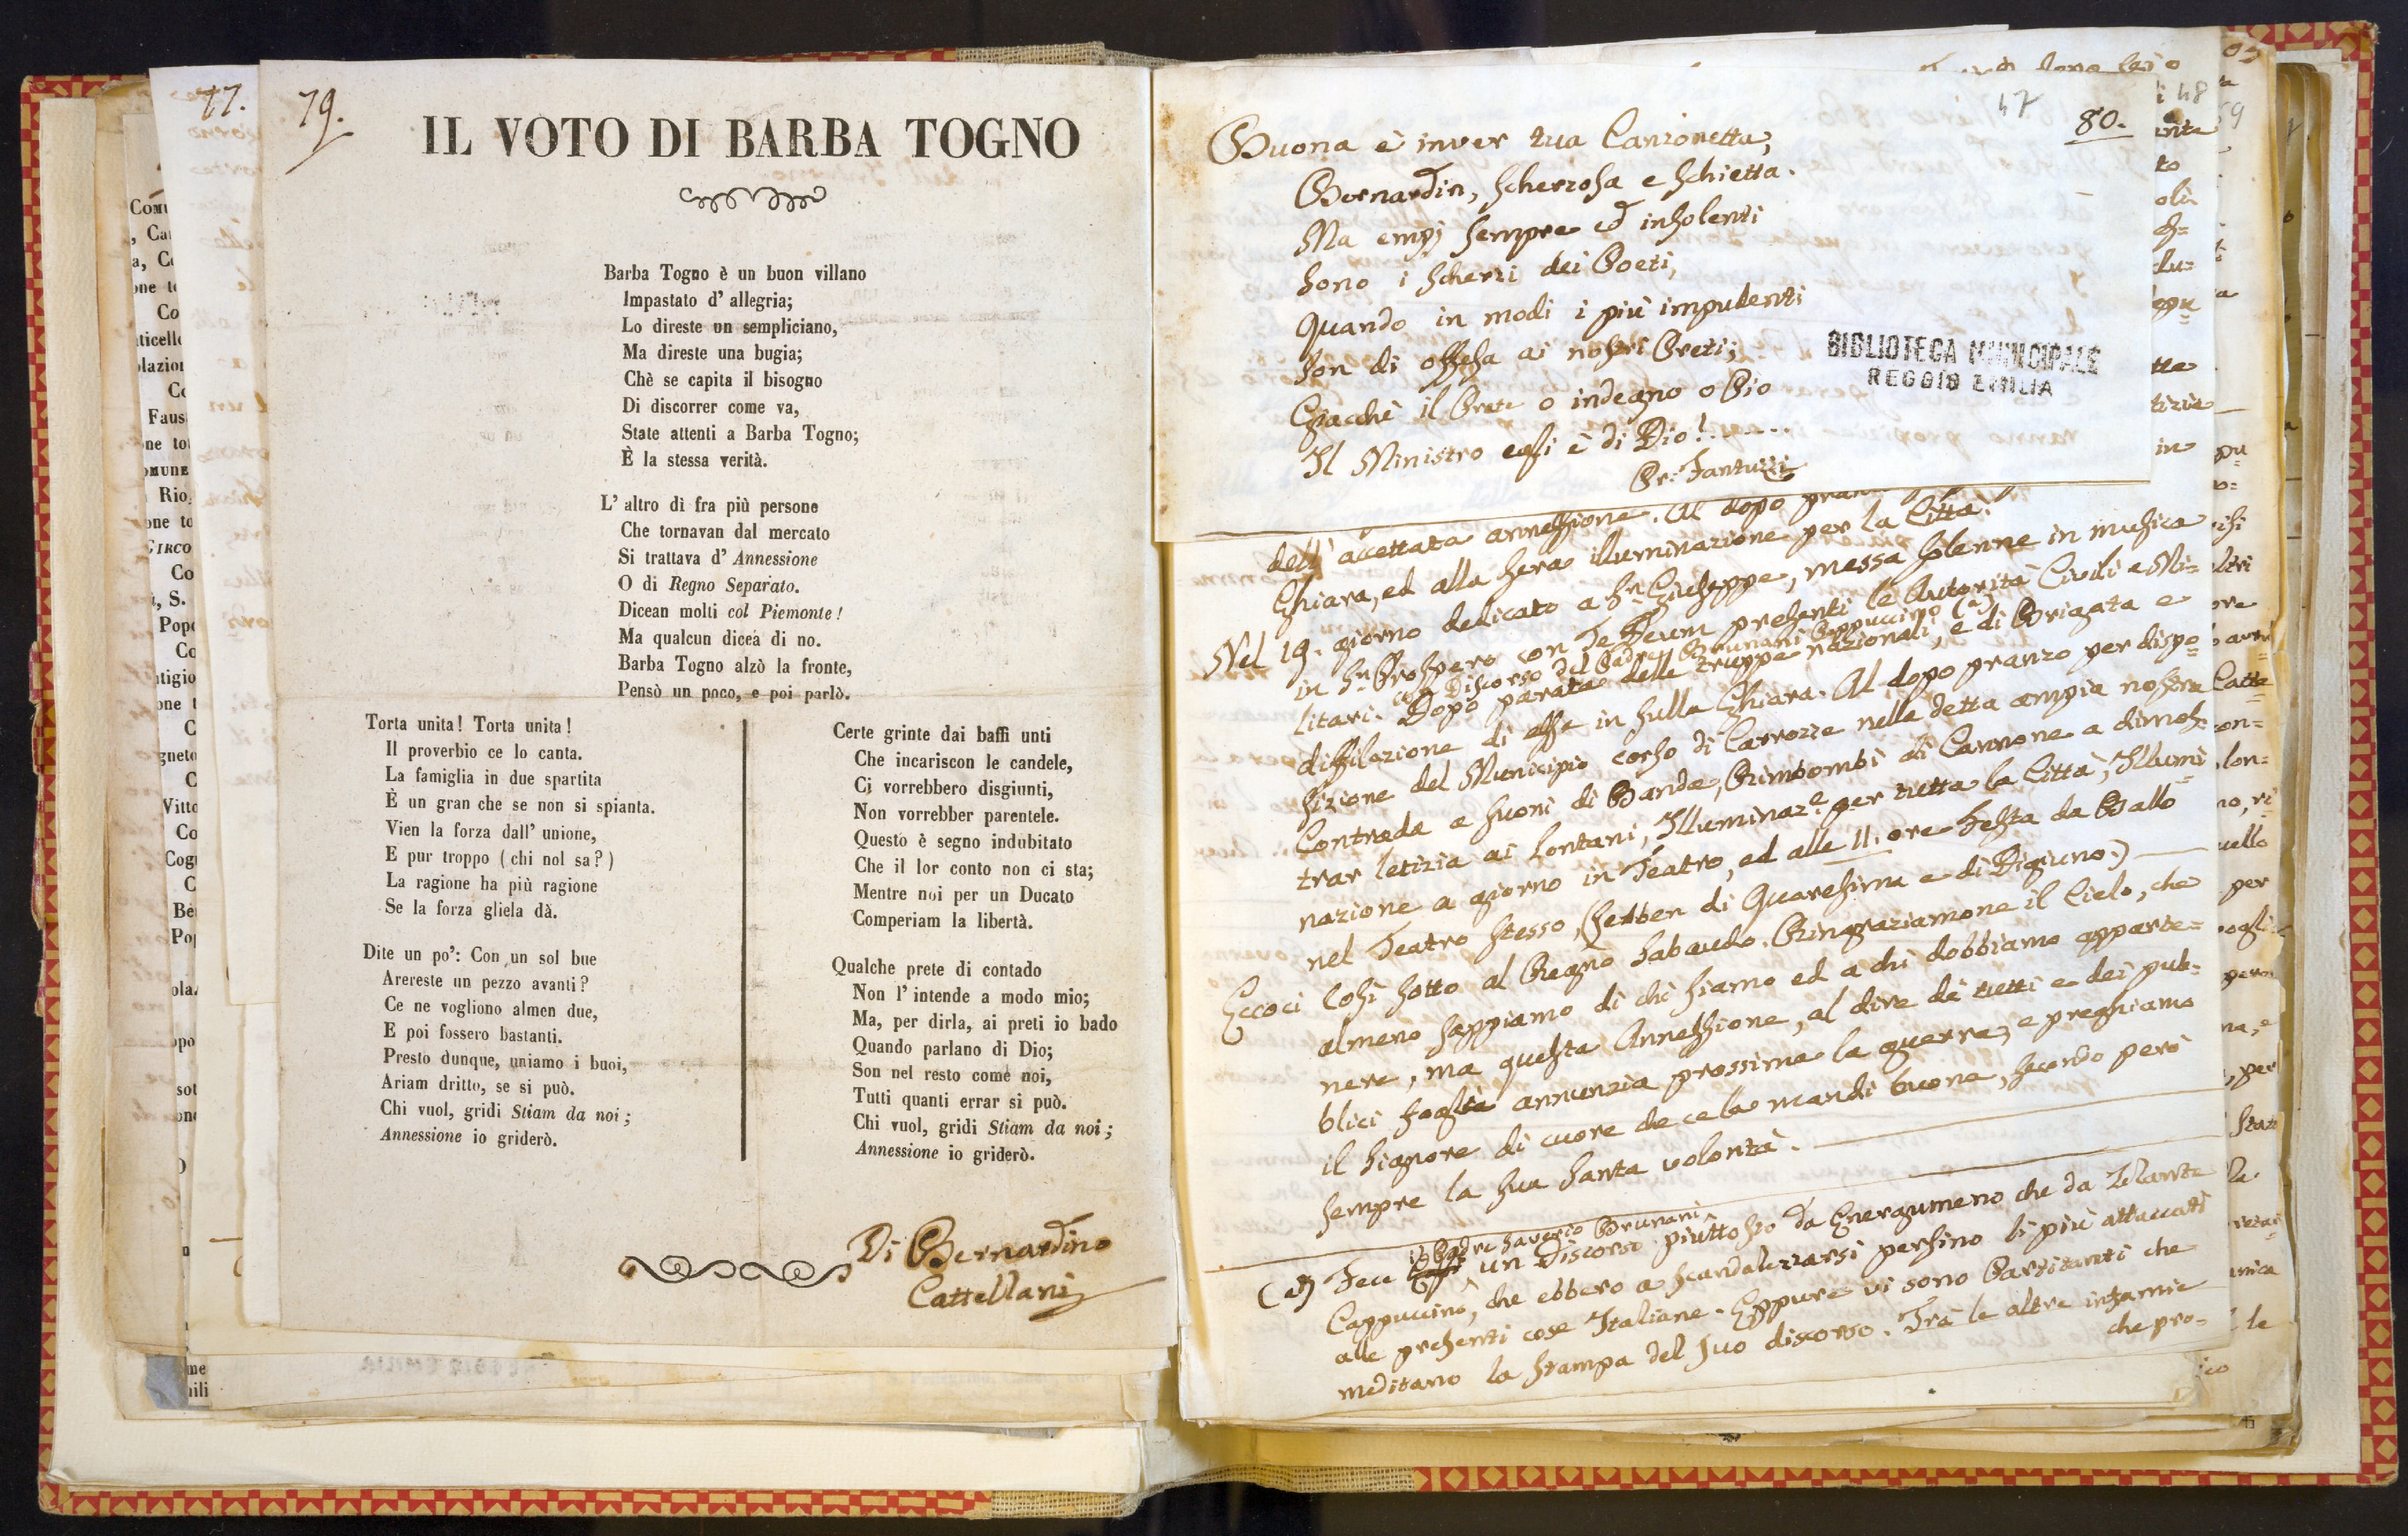 77.
79.
IL VOTO DI BARBA TOGNO
Barba Togno è un buon villano
Impastato d' allegria;
Lo direste un sempliciano,
Ma direste una bugia;
Chè se capita il bisogno
Di discorrer come va,
State attenti a Barba Togno;
È la stessa verità.
L' altro dì fra più persone
Che tornavan dal mercato
Si trattava d' Annessione
O di Regno Separato.
Dicean molti col Piemonte!
Ma qualcun dicea di no.
Barba Togno alzò la fronte,
Pensò un poco, e poi parlò.
Torta unita! Torta unita!
Il proverbio ce lo canta.
La famiglia in due spartita
È un gran che se non si spianta.
Vien la forza dall' unione,
E pur troppo (chi nol sa?)
La ragione ha più ragione
Se la forza gliela dà.
Dite un po': Con un sol bue
Arereste un pezzo avanti?
Ce ne vogliono almen due,
E poi fossero bastanti.
Presto dunque, uniamo i buoi,
Ariam dritto, se si può.
Chi vuol, gridi Stiam da noi;
Annessione io griderò.
Certe grinte dai baffi unti
Che incariscon le candele,
Ci vorrebbero disgiunti,
Non vorrebber parentele.
Questo è segno indubitato
Che il lor conto non ci sta;
Mentre noi per un Ducato
Comperiam la libertà.
Qualche prete di contado
Non l' intende a modo mio;
Ma, per dirla, ai preti io bado
Quando parlano di Dio;
Son nel resto come noi,
Tutti quanti errar si può.
Chi vuol, gridi Stiam da noi;
Annessione io griderò.
Di Bernardino
Cattellani
47
80.
Buona è inver tua Canzonetta,
Bernardin, scherzosa e schietta.
Ma empj sempre ed insolenti
Sono i scherzi dei Poeti,
Quando in modi i più impudenti
Son di offesa ai nostri Preti;
Giacchè il Prete o indegno o Pio
Il Ministro egli è di Dio!......
Pr: Fantuzzi
BIBLIOTECA MUNICIPALE
REGGIO EMILIA
dell' accettata annessione. Al dopo
Ghiara, ed alla sera illuminazione per la Città.
Nel 19. giorno dedicato a Sn Giuseppe, messa solenne in musica
in Sn Prospero con Te Deum presenti le Autorità Civili e Mi=
con Discorso del Padre Brunani Cappuccino (a)
litari. Dopo parata delle truppe nazionali, e di Brigata e
diffilazione di esse in sulla Ghiara. Al dopo pranzo per dispo=
sizione del Municipio corso di Carrozze nella detta ampia nostra
Contrada a suoni di Banda, Rimbombi di Cannone a dimos=
trar letizia ai lontani, Illuminaze per tutta la Città, Illumi=
nazione a giorno in Teatro, ed alle 11. ore Festa da Ballo
nel Teatro stesso, (sebben di Quaresima e di Digiuno.)
Eccoci così sotto al Regno Sabaudo. Ringraziamone il Cielo, che
almeno sappiamo di chi siamo ed a chi dobbiamo apparte=
nere, ma questa Annessione, al dire di tutti e dei pub=
blici foglj annunzia prossima la guerra, e preghiamo
il Signore di cuore che ce la mandi buona, secondo però
sempre la sua Santa volontà.
il Padre Saverio Brunani
(a) Fece un Discorso piuttosto da Energumeno, che da Zelante
Cappuccino, che ebbero a scandalezzarsi persino li più attaccati
alle presenti cose Italiane. Eppure vi sono Partitanti che
meditano la stampa del suo discorso. Trà le altre infamie
che pro=